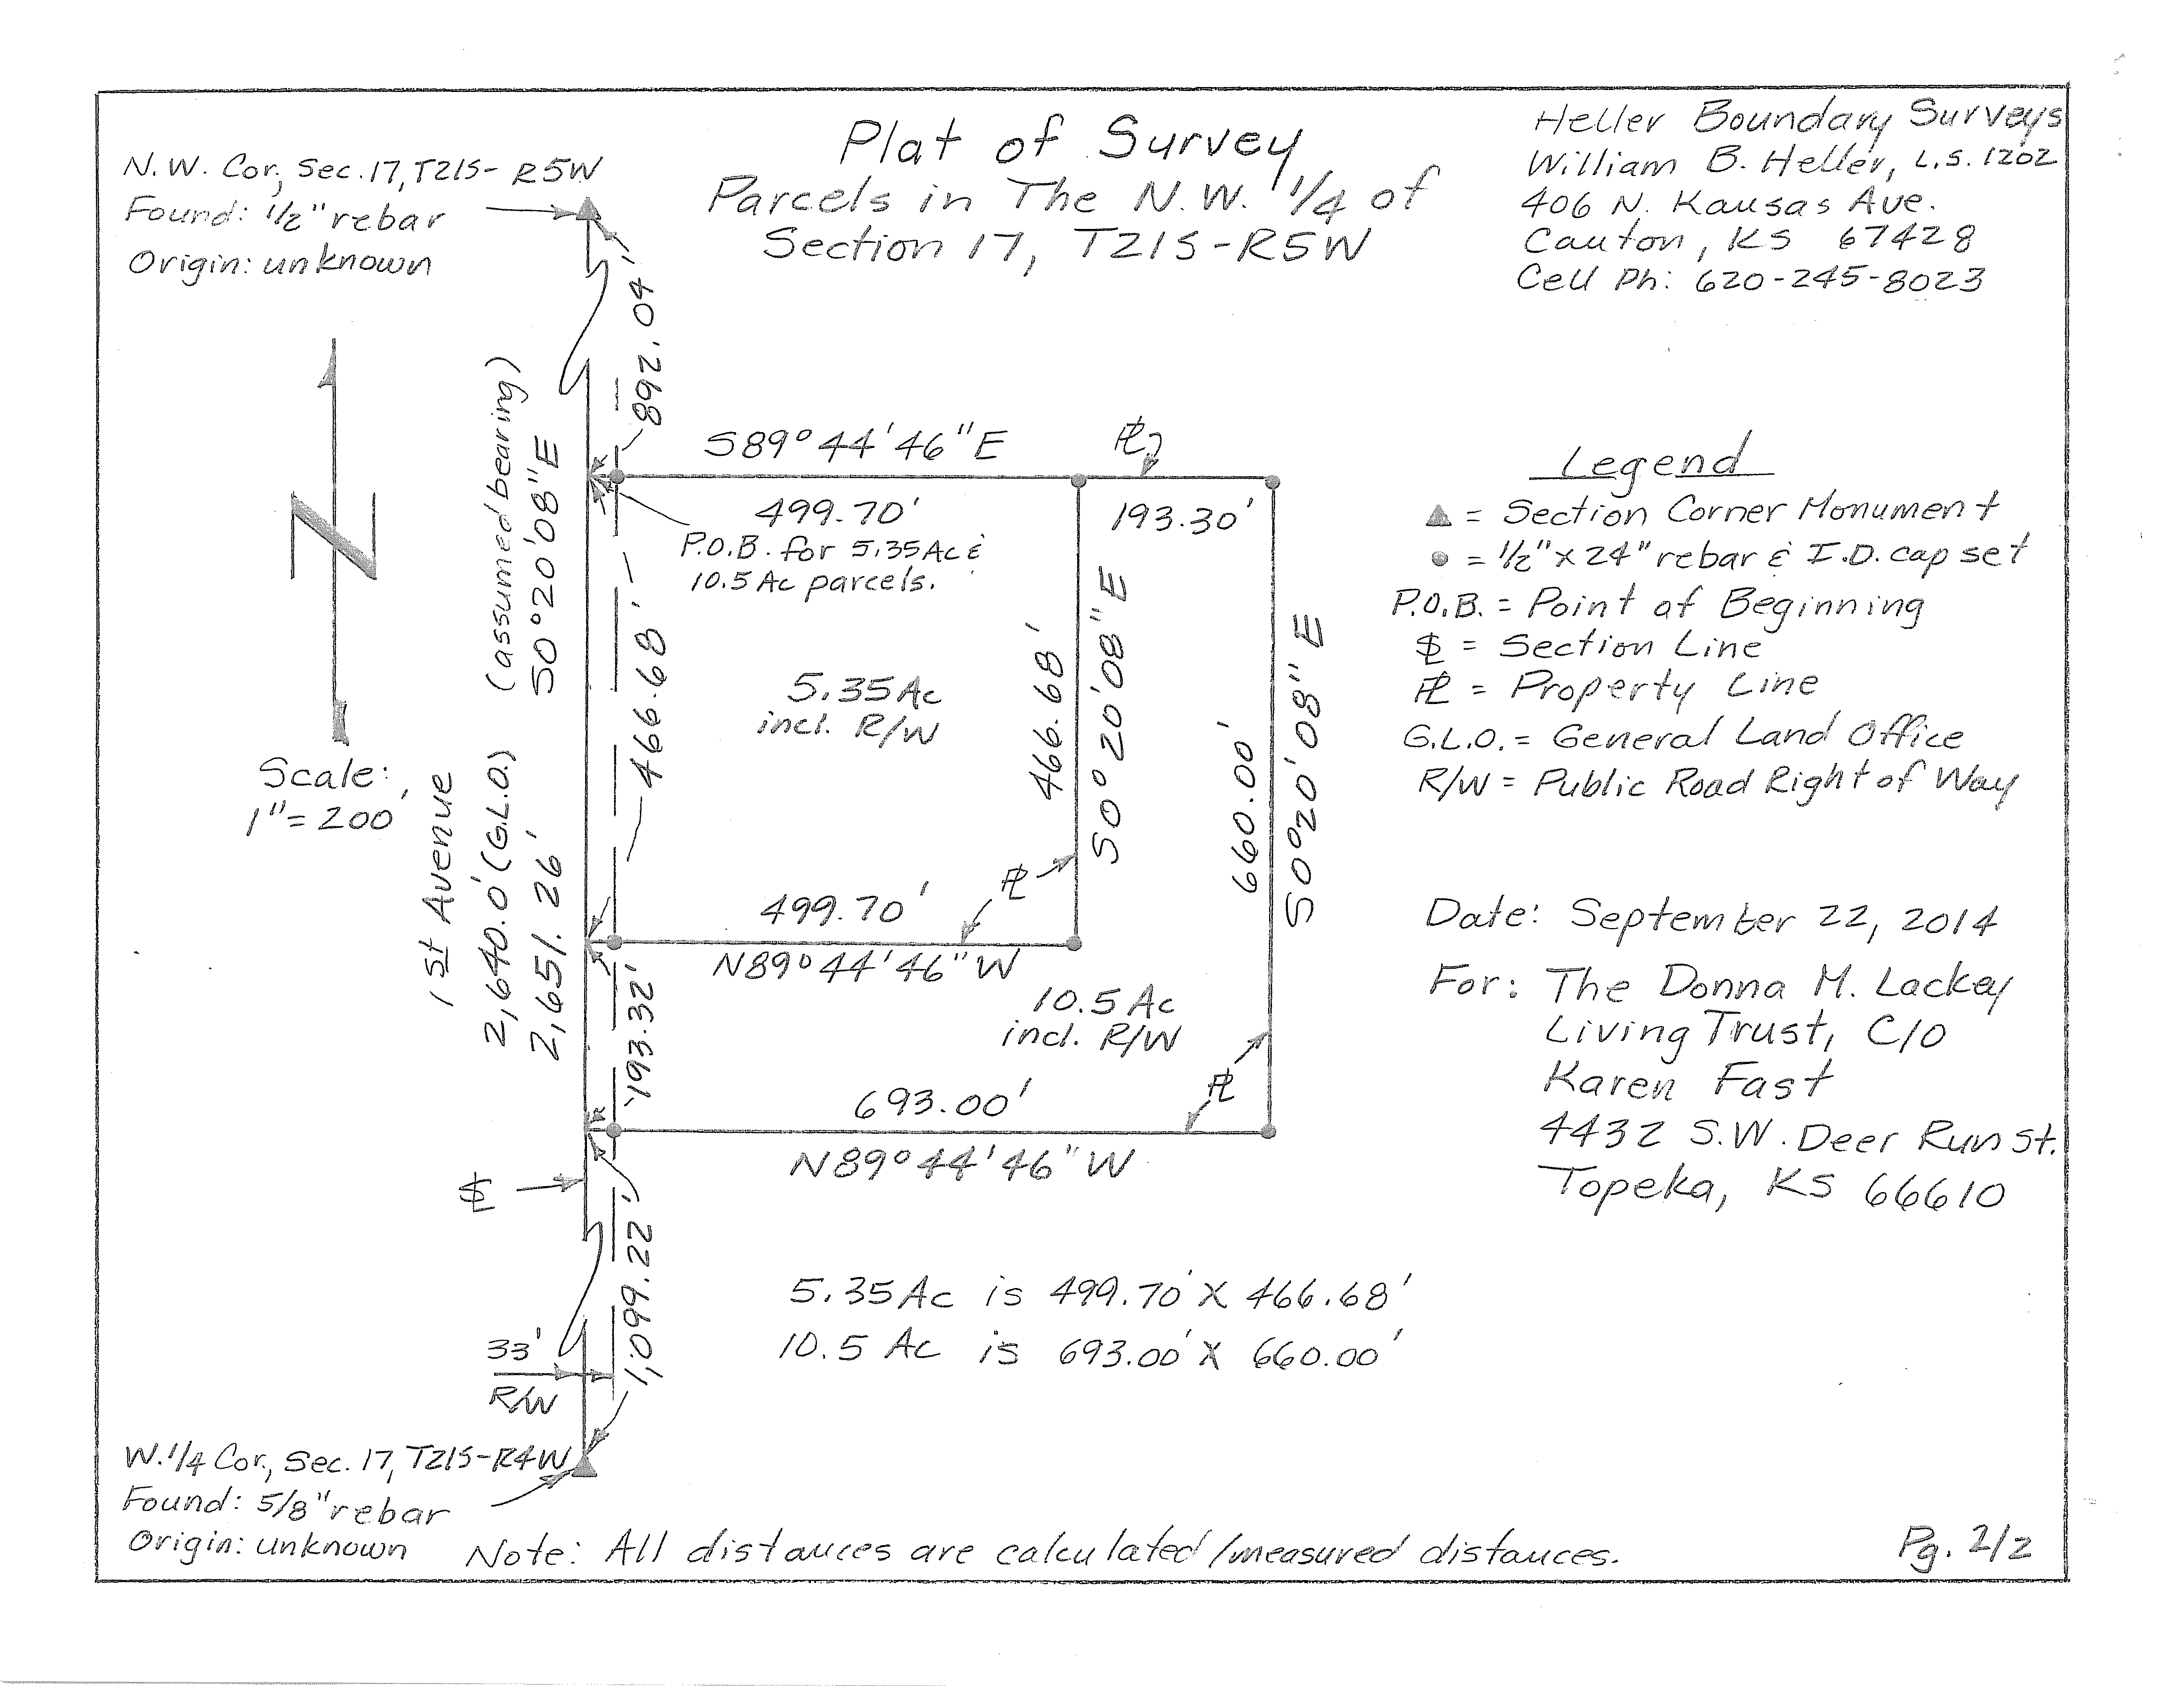 Plat of Survey
Parcels in The N.W. 1/4 of
Section 17, T21S-R5W
Heller Boundary Surveys
William B. Heller, L.S. 1202
406 N. Kansas Ave.
Canton, KS 67428
Cell Ph: 620-245-8023
N.W. Cor, Sec. 17, T21S-R5W
Found: 1/2" rebar
Origin: unknown
892.04'
(assumed bearing)
S0°20'08"E
Scale:
1"=200'
1st Avenue
2,640.0' (G.L.O.)
2,651.26'
S89°44'46"E
499.70'
193.30'
P.O.B. for 5.35Ac &
10.5 Ac parcels.
466.68'
5.35 Ac
incl. R/W
466.68'
S0°20'08"E
660.00'
S0°20'08"E
499.70'
N89°44'46"W
193.32'
10.5 Ac
incl. R/W
693.00'
N89°44'46"W
1,099.22'
33'
R/W
5.35 Ac is 499.70' X 466.68'
10.5 Ac is 693.00' X 660.00'
Legend
= Section Corner Monument
= 1/2" x 24" rebar & I.D. cap set
P.O.B. = Point of Beginning
= Section Line
= Property Line
G.L.O. = General Land Office
R/W = Public Road Right of Way
Date: September 22, 2014
For: The Donna M. Lackey
Living Trust, C/O
Karen Fast
4432 S.W. Deer Run St.
Topeka, KS 66610
W. 1/4 Cor, Sec. 17, T21S-R4W
Found: 5/8" rebar
Origin: unknown
Note: All distances are calculated/measured distances.
Pg. 2/2